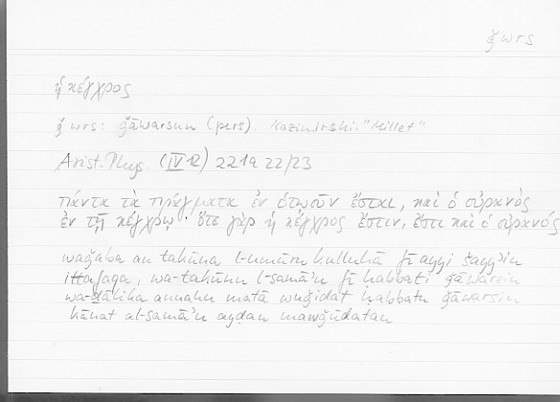 ǧwrs
ἡ κέγχρος
ǧwrs: ǧāwarsun (pers). Kazimirski: "Millet"
Arist. Phys. (IV 12) 221a 22/23
πάντα τὰ πράγματα ἐν ὁτῳοῦν ἔσται, καὶ ὁ οὐρανὸς
ἐν τῇ κέγχρῳ· ὅτε γὰρ ἡ κέγχρος ἔστιν, ἔστι καὶ ὁ οὐρανός
waǧaba an takūna l-umūru kulluhā fī ayyi šayʾin
ittafaqa, wa-takūnu l-samāʾu fī ḥabbati ǧāwarsin
wa-ḏālika annahu matā wuǧidat ḥabbatu ǧāwarsin
kānat al-samāʾu ayḍan mawǧūdatan